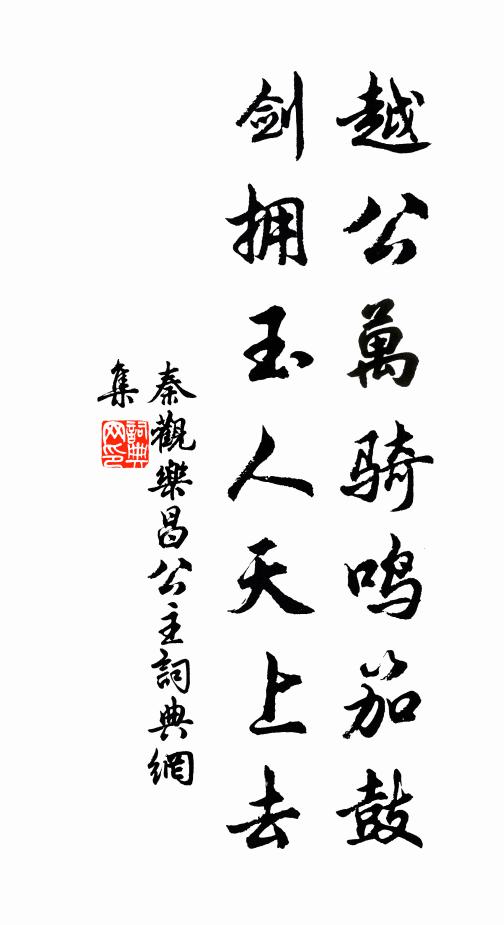 越公萬骑鸣笳鼓
剑拥玉人天上去
秦觀樂昌公主詞典網
集
詞典网印